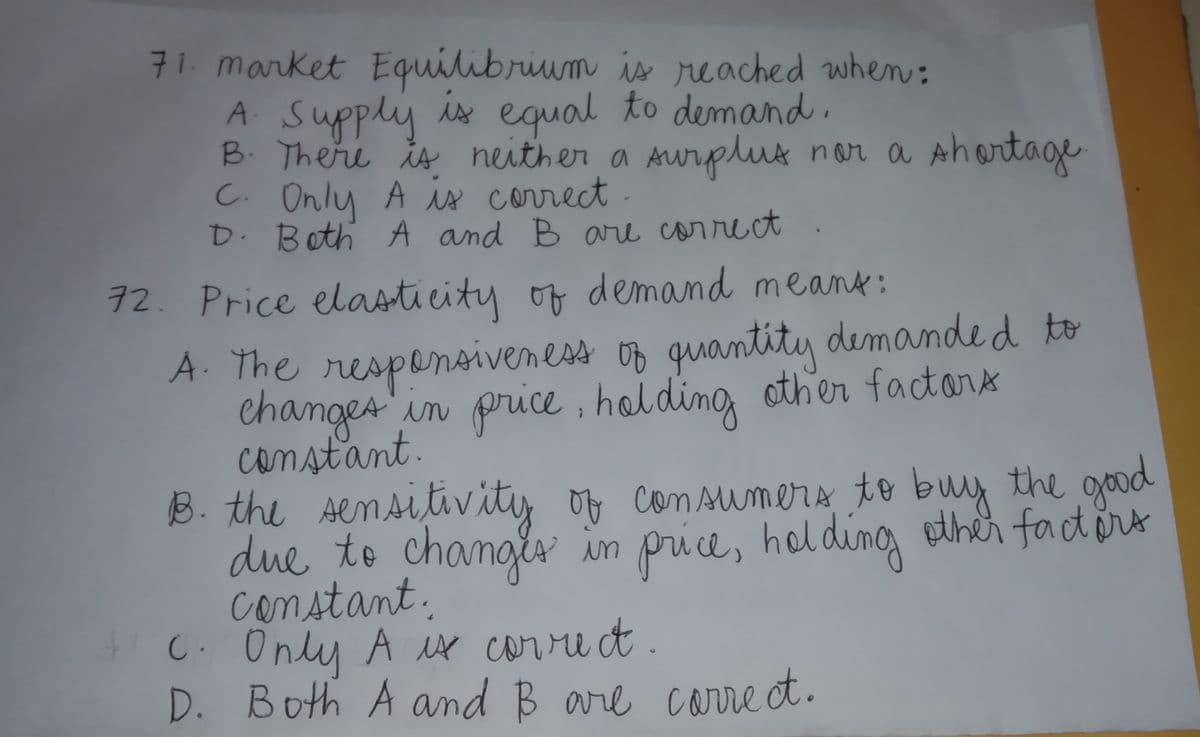 71. market Equilibrium is reached when:
A. Supply is equal to demand.
B. There is neither a surplus nor a shortage.
C. Only A is correct.
D. Both A and B are correct.
72. Price elasticity of demand means:
A. The responsiveness of quantity demanded to
changes in price, holding other factors
constant.
B. the sensitivity of consumers to buy the good
due to changes in price, holding other factors
constant.
C. Only A is correct.
D. Both A and B are correct.